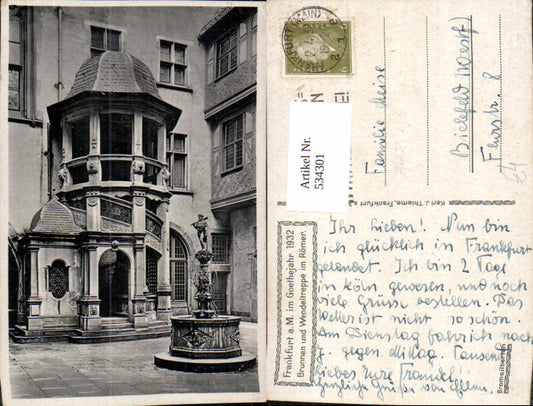 FRANKFURT (MAIN)
Artikel Nr.
534301
Familie Meise
Bielefeld (Westf)
Flurstr. 8
Karl J. Thieme, Frankfurt a.
Frankfurt a. M. im Goethejahr 1932
Brunnen und Wendeltreppe im Römer.
Bromsilber
Ihr Lieben! Nun bin
ich glücklich in Frankfurt
gelandet. Ich bin 2 Tage
in Köln gewesen, und noch
viele Grüße bestellen. Das
Wetter ist nicht so schön.
Am Dienstag fahr ich nach
g. gegen Mittag. Tausend
liebes Eure
herzliche Grüße von